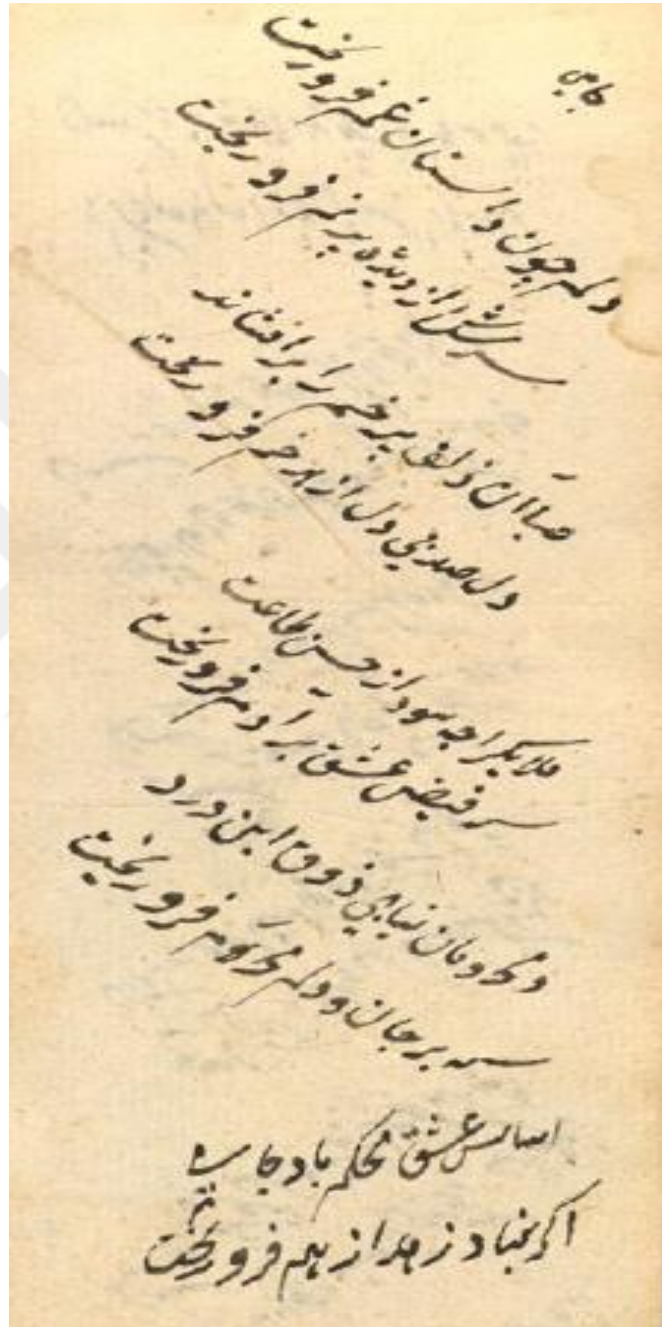 جامی
دلم چون داستان غم فرو ریخت
سرشک از دیده پر نم فرو ریخت
صبا آن زلف پر خم را برافشاند
دل صد بی دل از هر خم فرو ریخت
ملایکرا چه سود از حسن طاعت
فیض عشق بر آدم فرو ریخت
نیابی ذوق این درد
بر جان و دلم فرو ریخت
اساس عشق محکم باد جامی
اگر بنیاد زهد از هم فرو ریخت